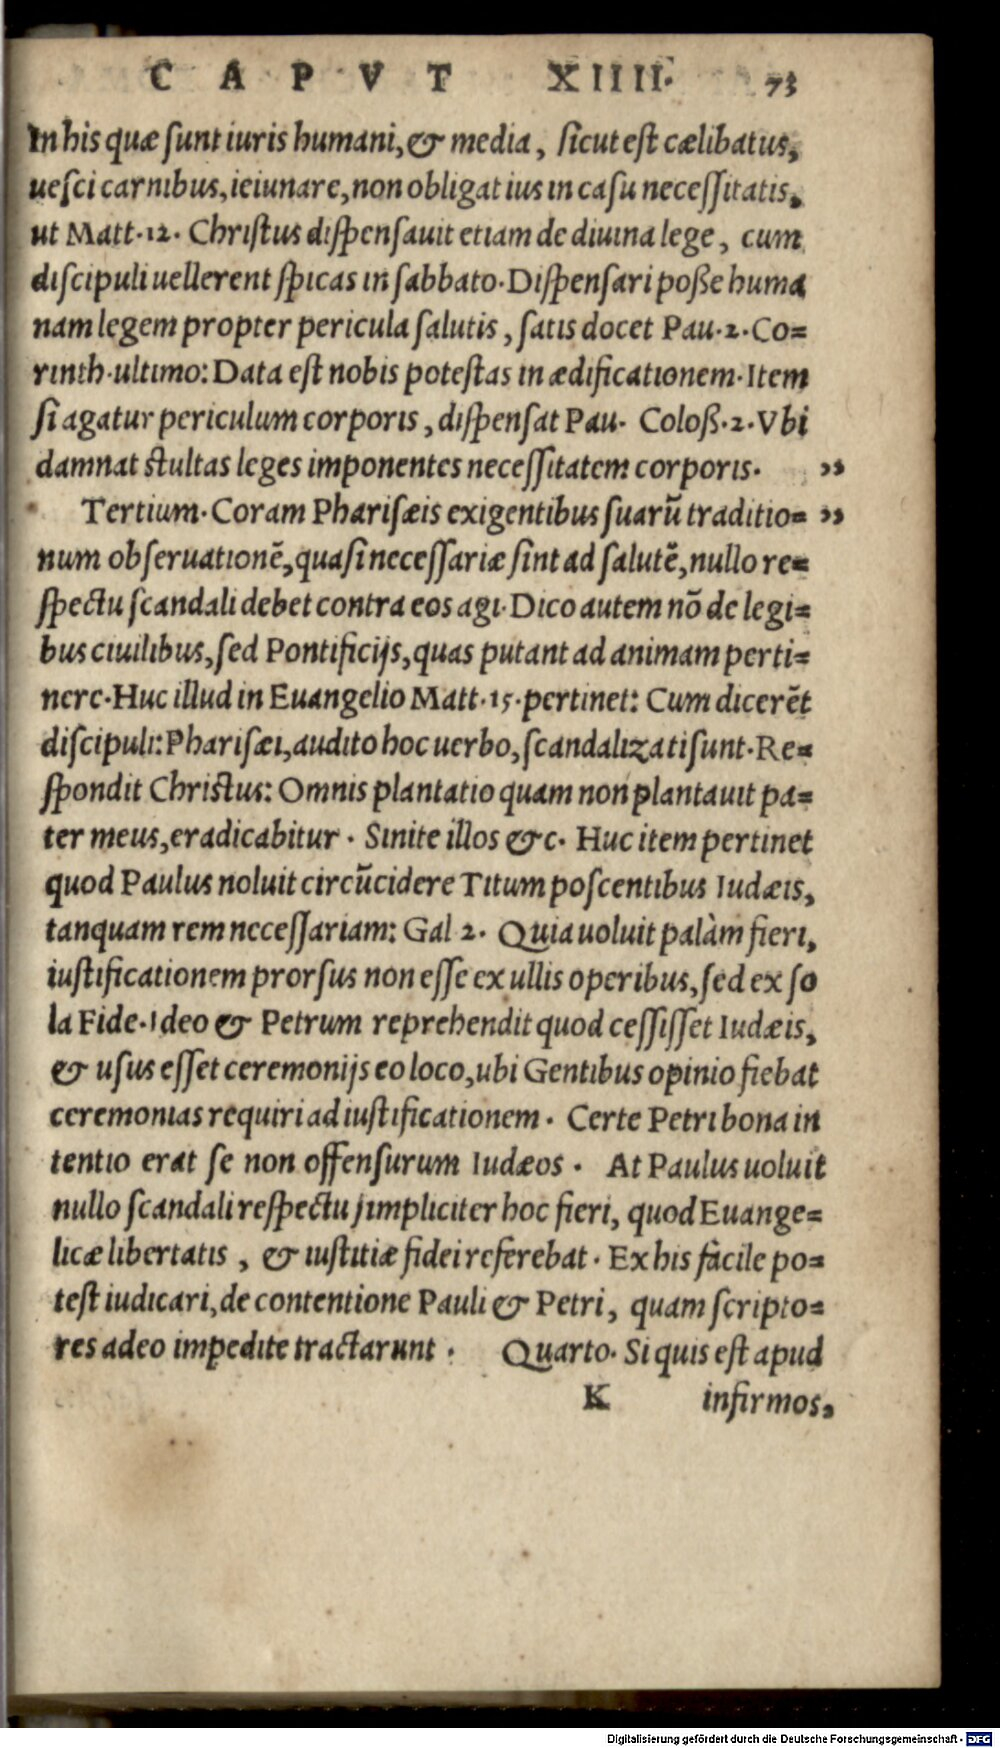 CAPVT XIIII. 73
In his quæ sunt iuris humani, & media, sicut est cælibatus,
uesci carnibus, ieiunare, non obligat ius in casu necessitatis,
ut Matt. 12. Christus dispensauit etiam de diuina lege, cum
discipuli uellerent spicas in sabbato. Dispensari poße huma
nam legem propter pericula salutis, satis docet Pau. 2. Co=
rinth. ultimo: Data est nobis potestas in ædificationem. Item
si agatur periculum corporis, dispensat Pau. Coloß. 2. Vbi
damnat stultas leges imponentes necessitatem corporis. ,,
Tertium. Coram Pharisæis exigentibus suarũ traditio= ,,
num obseruationẽ, quasi necessariæ sint ad salutẽ, nullo re=
spectu scandali debet contra eos agi. Dico autem nõ de legi=
bus ciuilibus, sed Pontificijs, quas putant ad animam perti=
nere. Huc illud in Euangelio Matt. 15. pertinet: Cum dicerẽt
discipuli: Pharisæi, audito hoc uerbo, scandalizati sunt. Re=
spondit Christus: Omnis plantatio quam non plantauit pa=
ter meus, eradicabitur. Sinite illos &c. Huc item pertinet
quod Paulus noluit circũcidere Titum poscentibus Iudæis,
tanquam rem necessariam: Gal 2. Quia uoluit palàm fieri,
iustificationem prorsus non esse ex ullis operibus, sed ex so
la Fide. Ideo & Petrum reprehendit quod cessisset Iudæis,
& usus esset ceremonijs eo loco, ubi Gentibus opinio fiebat
ceremonias requiri ad iustificationem. Certe Petri bona in
tentio erat se non offensurum Iudæos. At Paulus uoluit
nullo scandali respectu simpliciter hoc fieri, quod Euange=
licæ libertatis, & iustitiæ fidei referebat. Ex his fàcile po=
test iudicari, de contentione Pauli & Petri, quam scripto=
res adeo impedite tractarunt. Quarto. Si quis est apud
K infirmos,
Digitalisierung gefördert durch die Deutsche Forschungsgemeinschaft - DFG